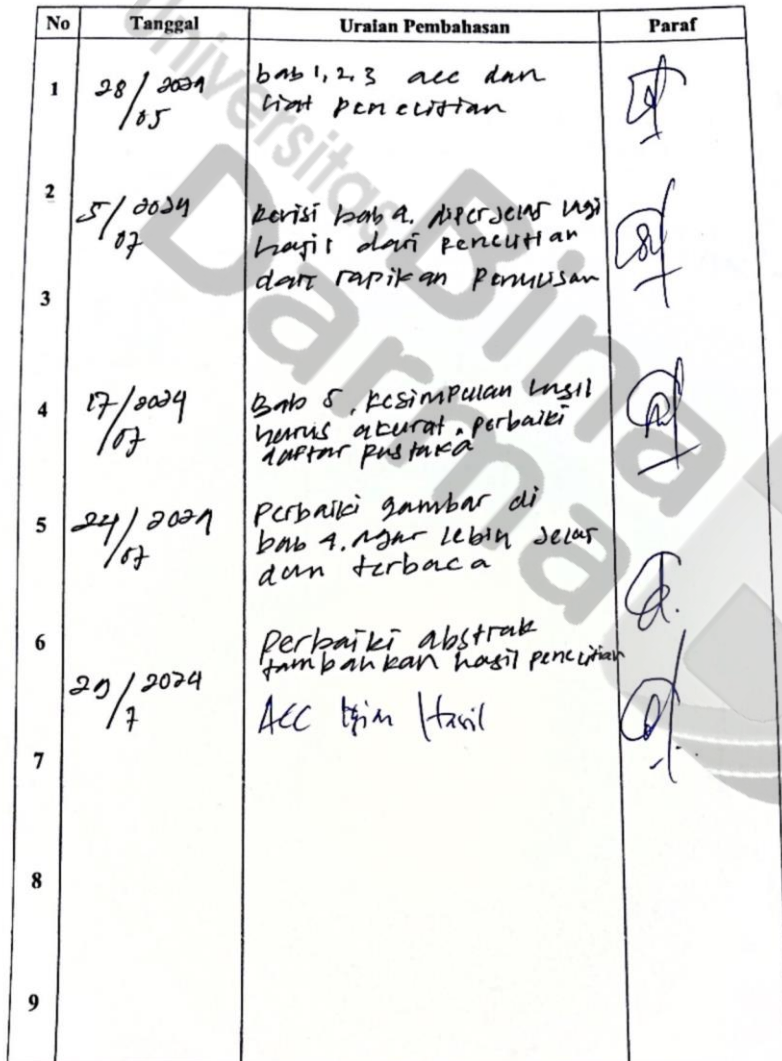 Universitas
Bina
Darma
No Tanggal Uraian Pembahasan Paraf
1 28/05 2024 bab 1, 2, 3 acc dan
liat penelitian
2
5/07 2024 Revisi bab 4. diperjelas lagi
hasil dari penelitian
dan rapikan Penulisan
3
4 17/07 2024 Bab 5, kesimpulan hasil
harus akurat. perbaiki
daftar pustaka
5 24/07 2024 Perbaiki gambar di
bab 4. agar lebih jelas
dan terbaca
6 Perbaiki abstrak
tambahkan hasil penelitian
29/7 2024 ACC Ujian Hasil
7
8
9